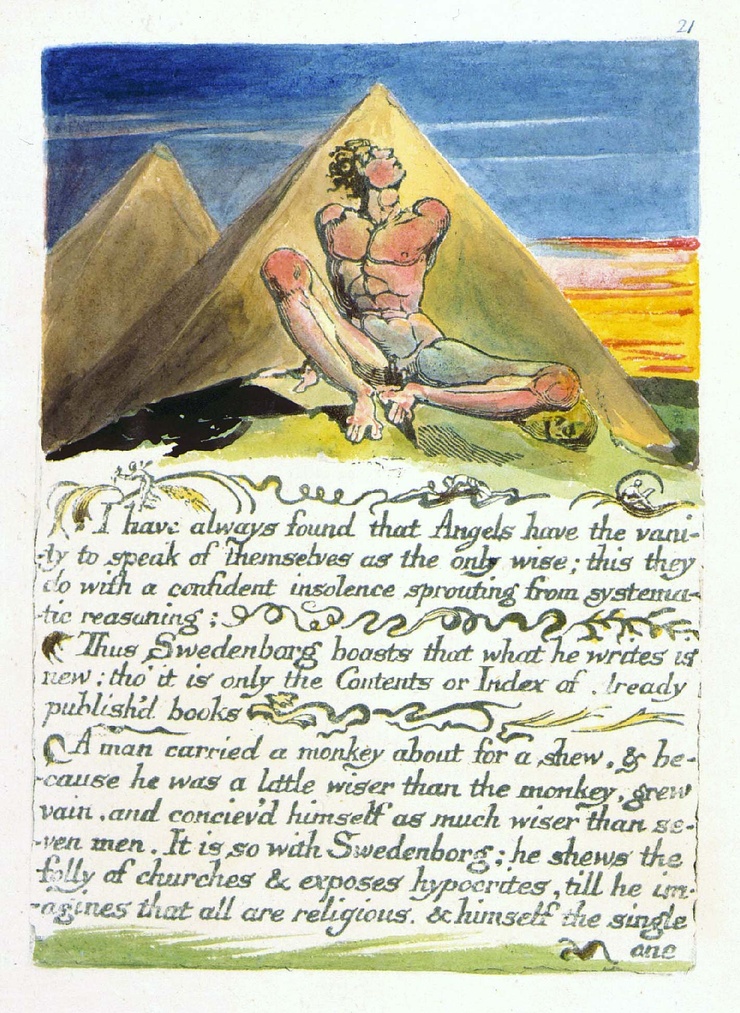 21
I have always found that Angels have the vani-
-ty to speak of themselves as the only wise; this they
do with a confident insolence sprouting from systema-
-tic reasoning:
Thus Swedenborg boasts that what he writes is
new: tho' it is only the Contents or Index of lready
publish'd books
A man carried a monkey about for a shew, & be-
-cause he was a little wiser than the monkey, grew
vain, and conciev'd himself as much wiser than se-
-ven men. It is so with Swedenborg; he shews the
folly of churches & exposes hypocrites, till he im-
-agines that all are religious. & himself the single
one